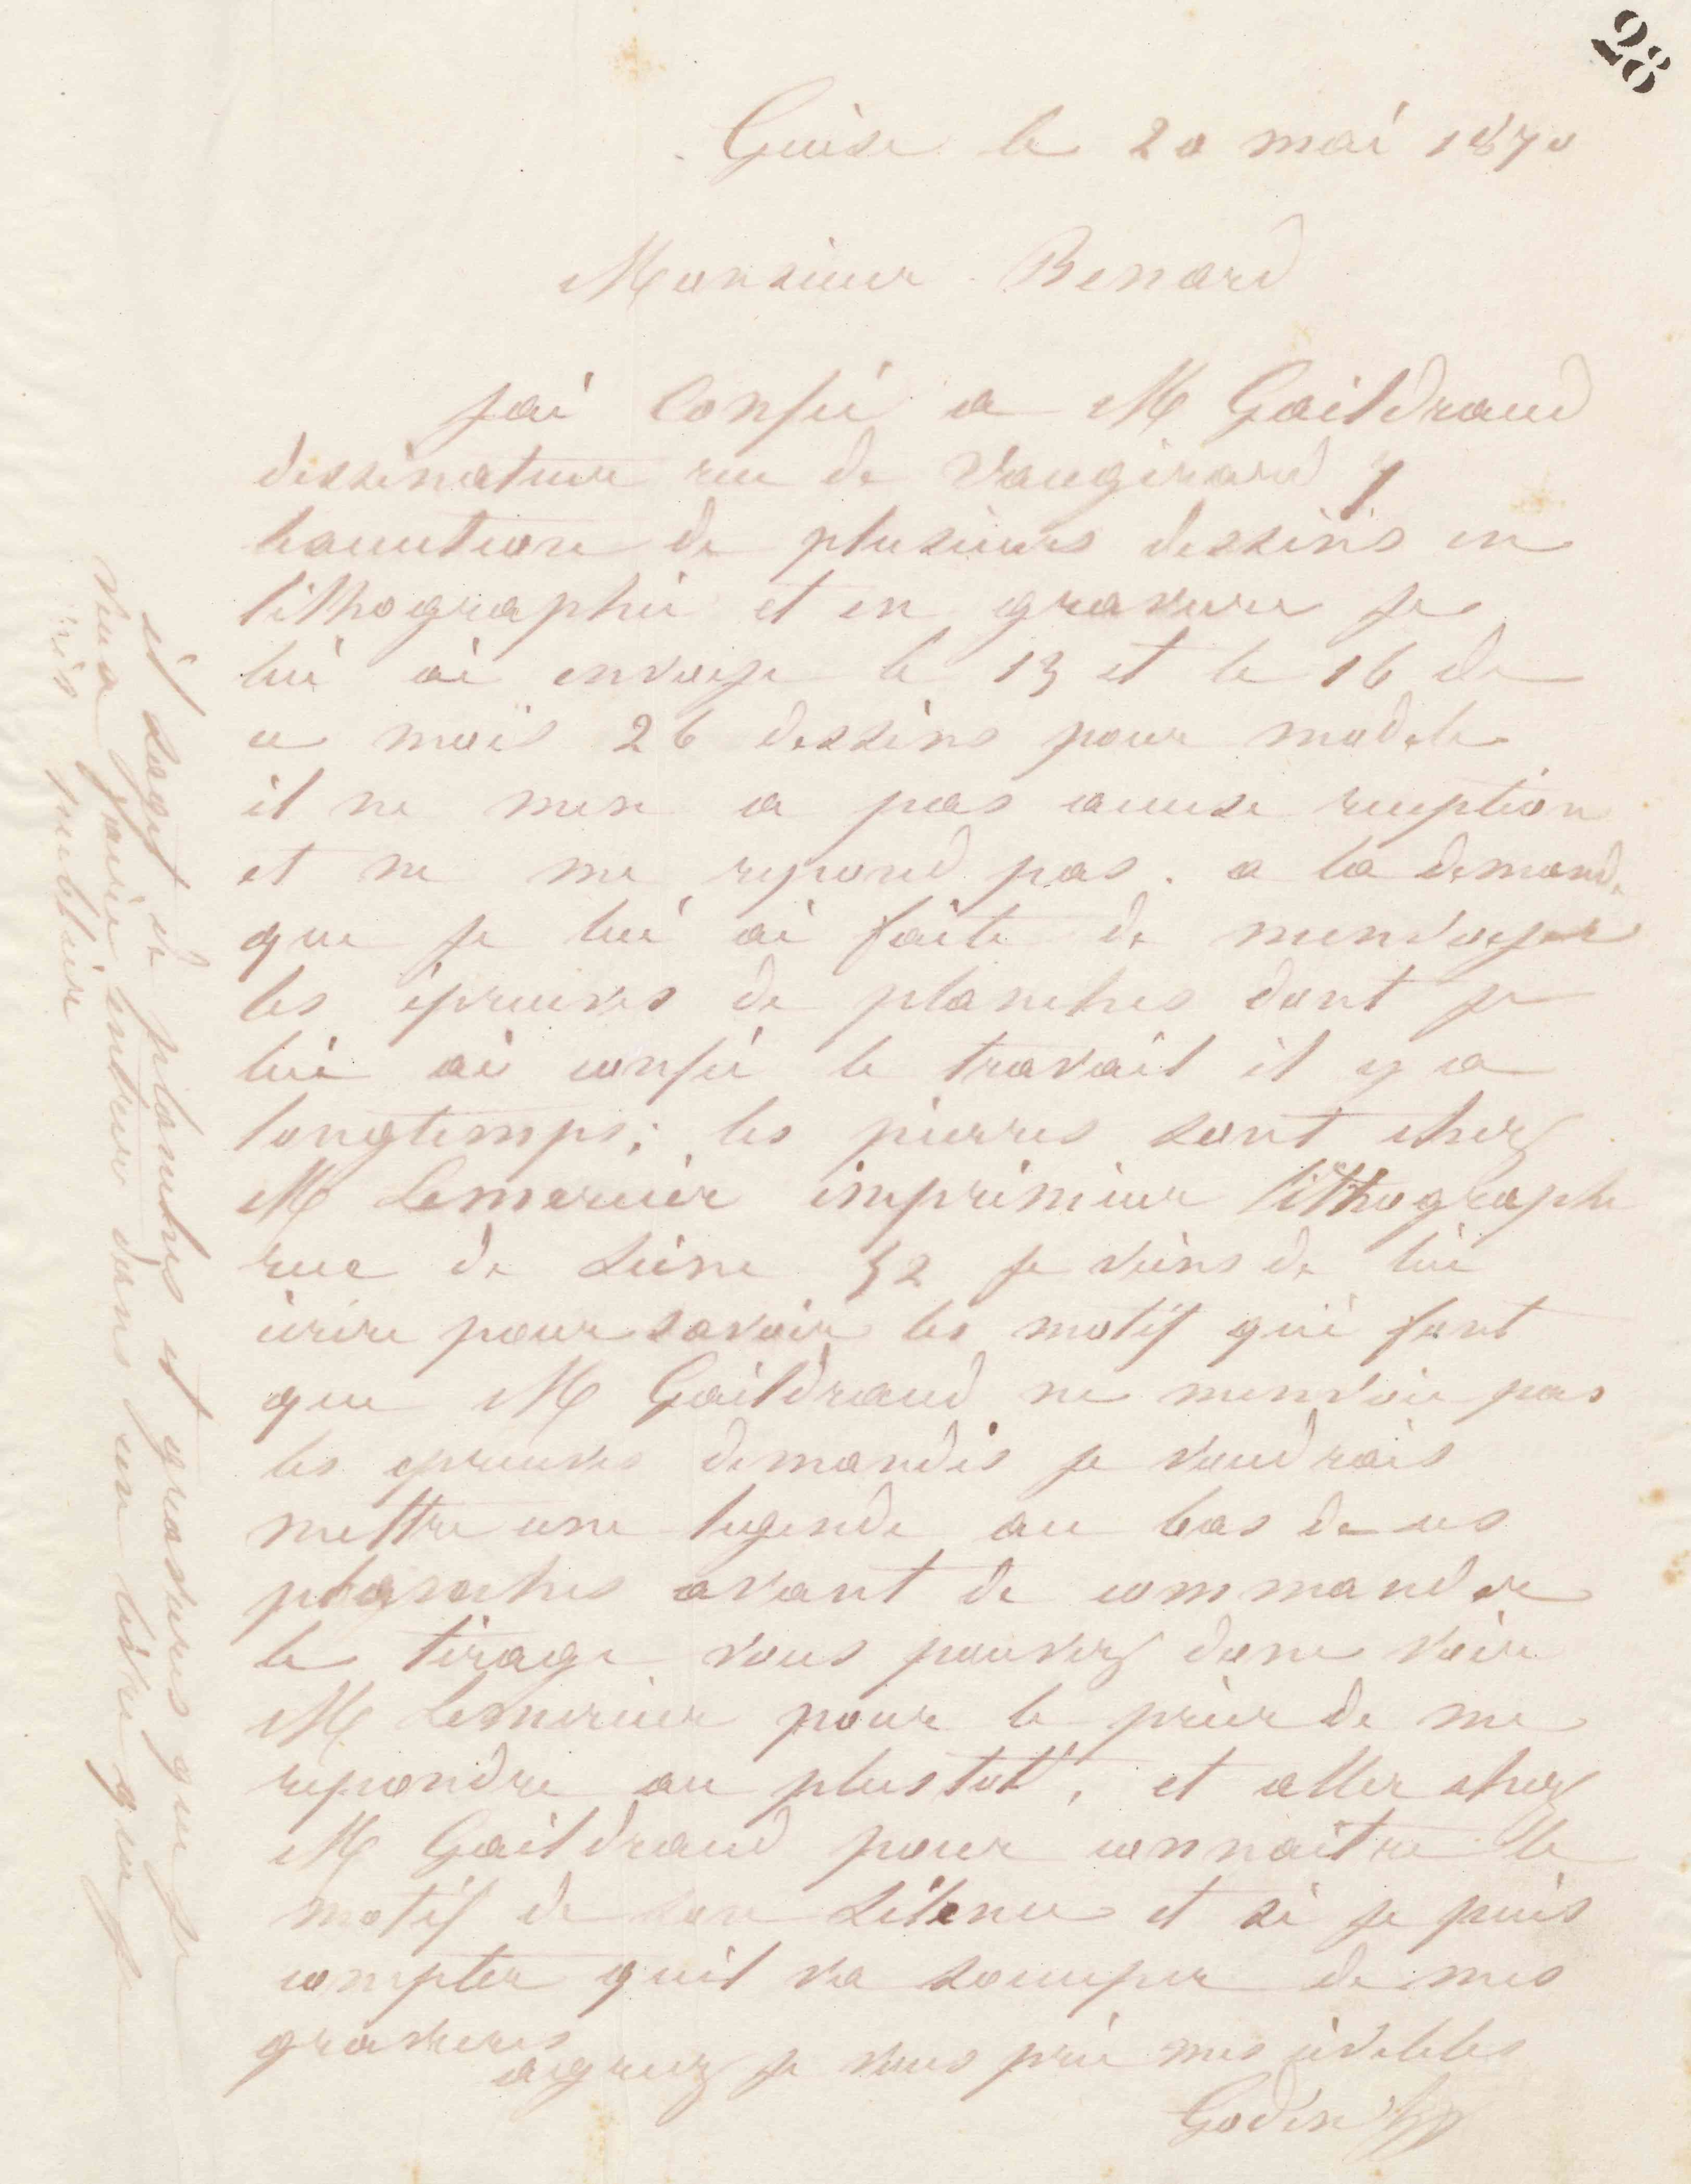 28
Guise le 20 mai 1870
Monsieur Benard
jai Confié a M Gaildraud
dessinateur rue de Vaugirard 7
lexecution de plusieurs dessins en
lithographie et en gravure je
lui ai envoye le 13 et le 16 de
ce mois 26 dessins pour modele
il ne men a pas accuse reception
et ne me repond pas. a la demande
que je lui ai faite de menvoyer
les épreuves de planches dont je
lui ai confié le travail il y a
longtemps; les pierres sont chez
M Lemercier imprimeur lithographe
rue de Seine 32 je viens de lui
ecrire pour savoir les motif qui font
que M Gaildraud ne menvoie pas
les epreuves demandés je voudrais
mettre une legende au bas de ces
planches avant de commander
le tirage vous pouvez donc voir
M Lemercier pour le prier de me
repondre au plustot, et aller chez
M Gaildraud pour connaitre le
motif de son Silence et si je puis
compter quil va soccuper de mes
gravures
agreez je vous prie mes civilités
Godin
il sagit de planches et gravures que je
veux faire entrer dans un livre que je
vais publier